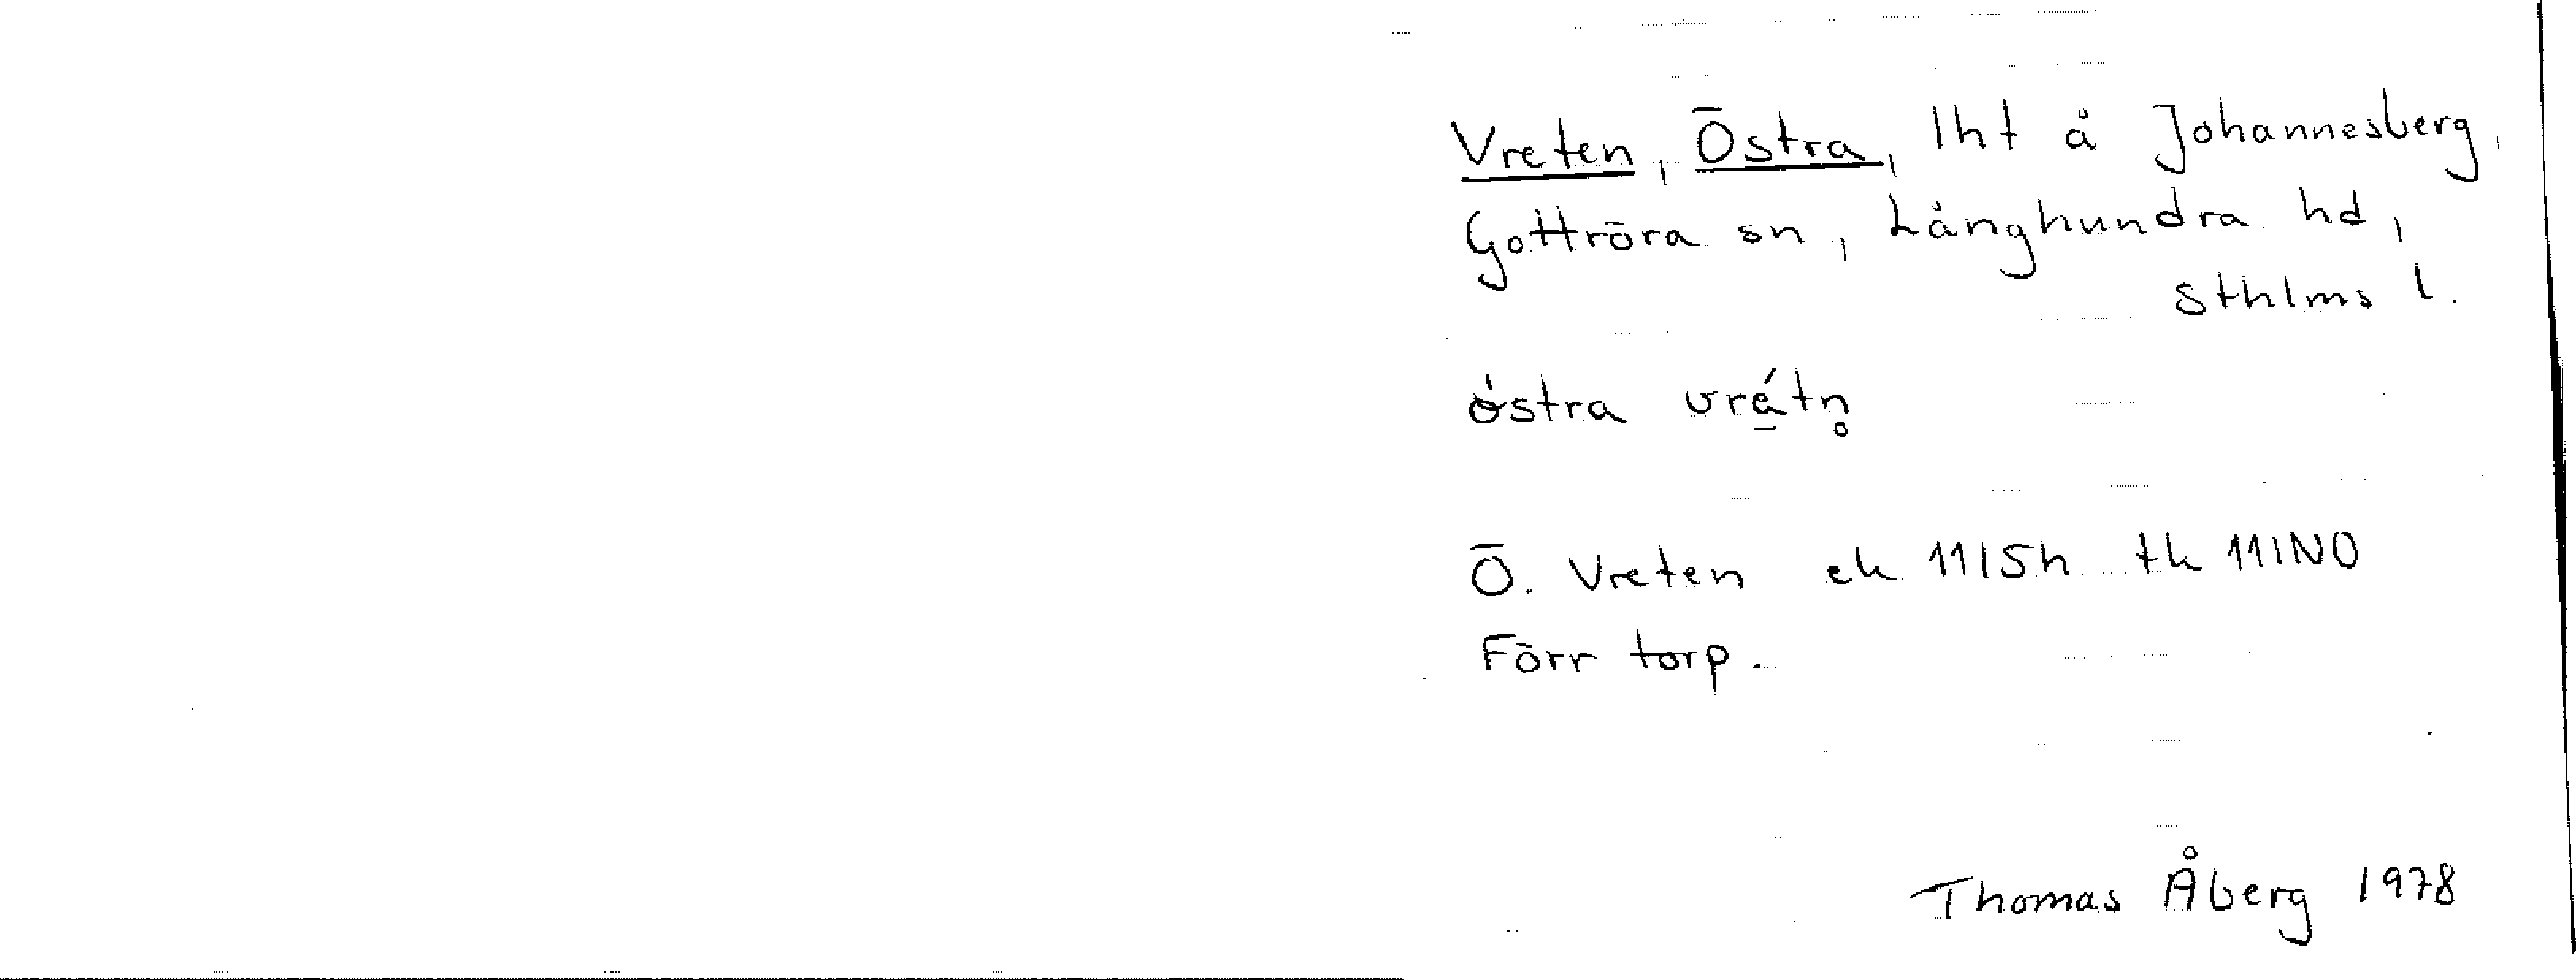 Vreten, Östra, lht å Johannesberg,
Gottröra sn, Långhundra hd,
Sthlms l.
ǿstra vré̱tn̥
Ö. Vreten ek 11I5h tk 11INO
Förr torp.
Thomas Åberg 1978